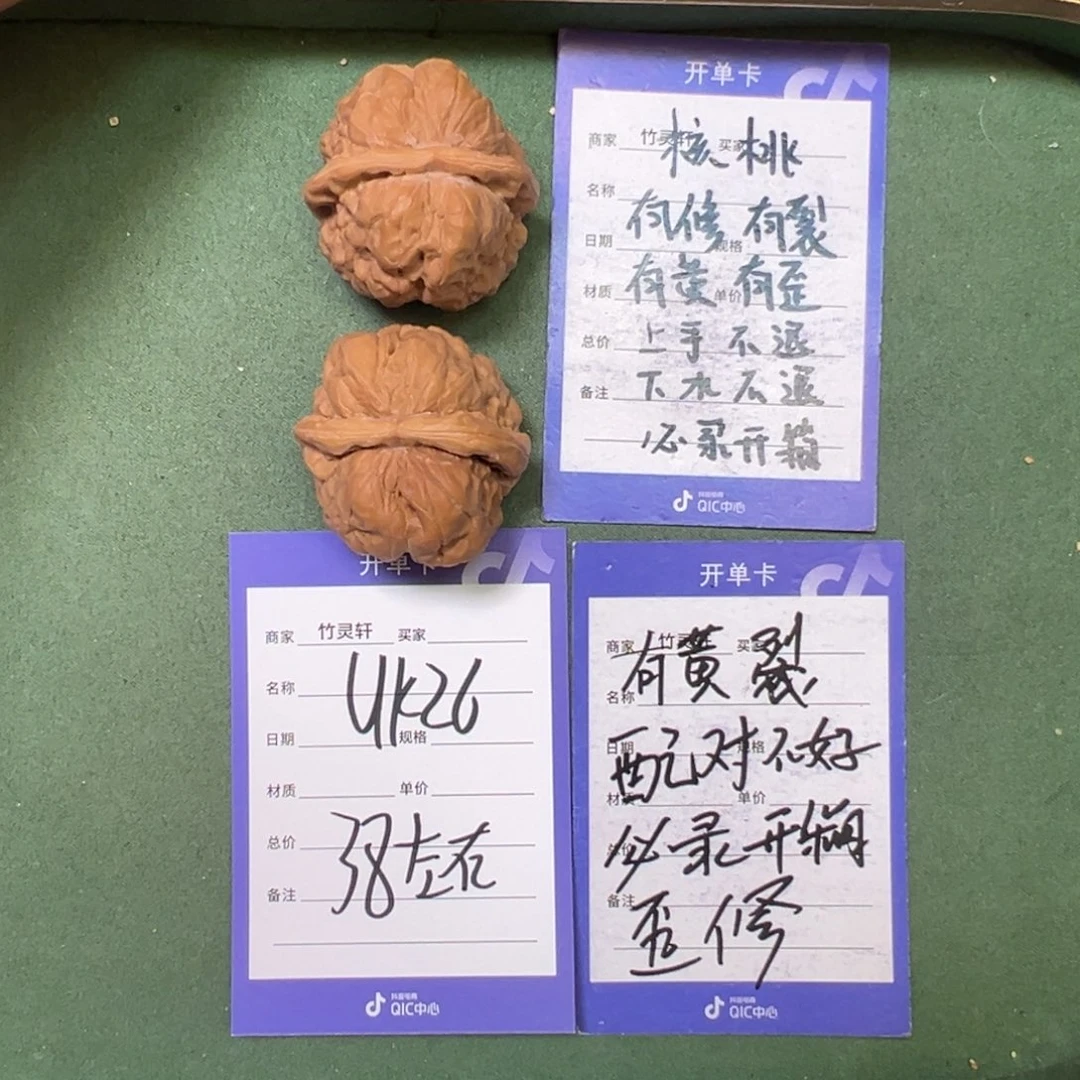 开单卡
商家 竹灵轩 买家
核桃
名称
有修 有裂
日期 规格
有黄 有歪
材质 单价
上手不退
总价
下水不退
备注
必录开箱
抖音电商
QIC中心
开单卡
商家 竹灵轩 买家
名称
UK26
日期 规格
材质 单价
总价
38左右
备注
抖音电商
QIC中心
开单卡
商家 竹灵轩 买家
有黄裂
名称
日期 规格
配对不好
材质 单价
总价
必录开箱
备注
歪修
抖音电商
QIC中心